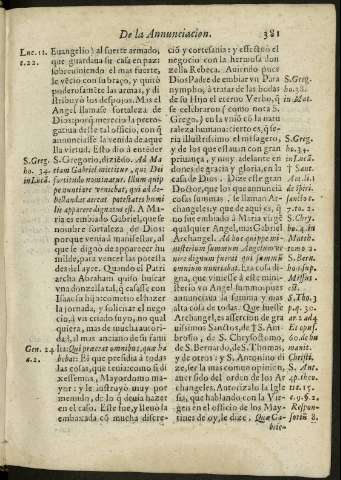 De la Annunciacion. 381
Luc. 11.
c. 22.
Euangelio) al fuerte armado,
que guardaua su casa en paz:
sobreuiniendo el mas fuerte,
le vēcio con su braço, y quitò
poderosamēte las armas, y di
stribuyò los despojos. Mas el
Angel llamase fortaleza de
Dios: porq̃ merecio la prerrogatiua
deste tal officio, con q̃
annunciasse la venida de aque
lla virtud. Esto diò à entēder
S. Greg.
ho. 34.
in Lucā.
S. Gregorio, diziēdo. Ad Ma
riam Gabriel mittitur, qui Dei
fortitudo nominatur. Illum quip
pe nuntiare veniebat, qui ad debellandas
aereas potestates humi
lis apparere dignatus est. A Maria
es embiado Gabriel, que se
nombre fortaleza de Dios:
porque venia à manifestar, al
que se dignò de aparecer humilde,
para vencer las potesta
des del ayre. Quando el Patri
archa Abraham quiso buscar
vna donzella tal, q̃ casasse con
Isaac su hijo: cometio el hazer
la jornada, y solicitar el negocio,
à vn criado, no qual
quiera, mas de mucha autoridad:
al mas anciano de su fami
Gen. 24
n. 2.
lia: Qui præerat omnibus, quæ habebat:
El q̃ presidia à todas
las cosas, que tenia: como si di
xessemos, Mayordomo mayor:
y le instruyò muy por
menudo, de lo q̃ deuia hazer
en el caso. Este fue, y lleuò la
embaxada cõ mucha discreció
y cortesania: y effectuò el
negocio con la hermosa don
zella Rebeca. Auiendo pues
Dios Padre de embiar vn Para
S. Greg.
ho. 38.
in Mat.
nympho, à tratar de las bodas
de su Hijo el eterno Verbo, q̃
se celebraron (como nota S.
Gregor.) en la vniõ cõ la naturaleza
humana: cierto es, q̃ seria
illustrissimo el mēsagero,
S. Greg.
ho. 34.
in Lucā.
y de los que estauan con gran
priuança, y muy adelante en
dones de gracia y gloria, en la
casa de Dios. Dize este gran
Doctor, que los que annunciā
cosas summas, se llaman Archangeles;
y que de aqui es, q̃
no fue embiado à Maria virgē
qualquier Angel, mas Gabriel
S. Chry.
Archangel. Ad hoc quippe mi-
nisterium summum Angelum ve
S. Bern.
nire dignum fuerat qui summũ
omnium nuntiabat. Era cosa digna,
que viniesse à este ministerio
vn Angel summo: pues
annunciaua la summa y mas
S. Tho. 3
p. q. 30.
alta cosa de todas. Que fuesse
Archangel, es asserciõ de grauissimos
Sanctos, de † S. Ambrosio,
de S. Chrysostomo,
de S. Bernardo, de S. Thomas,
y de otros: y S. Antonino di
ze, ser la mas comun opinion,
S. Ant.
4. p. theo.
tit. 15.
auer sido del orden de los Archangeles.
Autorizalo la Iglesia,
que hablando con la Virgen
en el officio de los Maytines
de oy, le dize. Quæ Ga-
briele